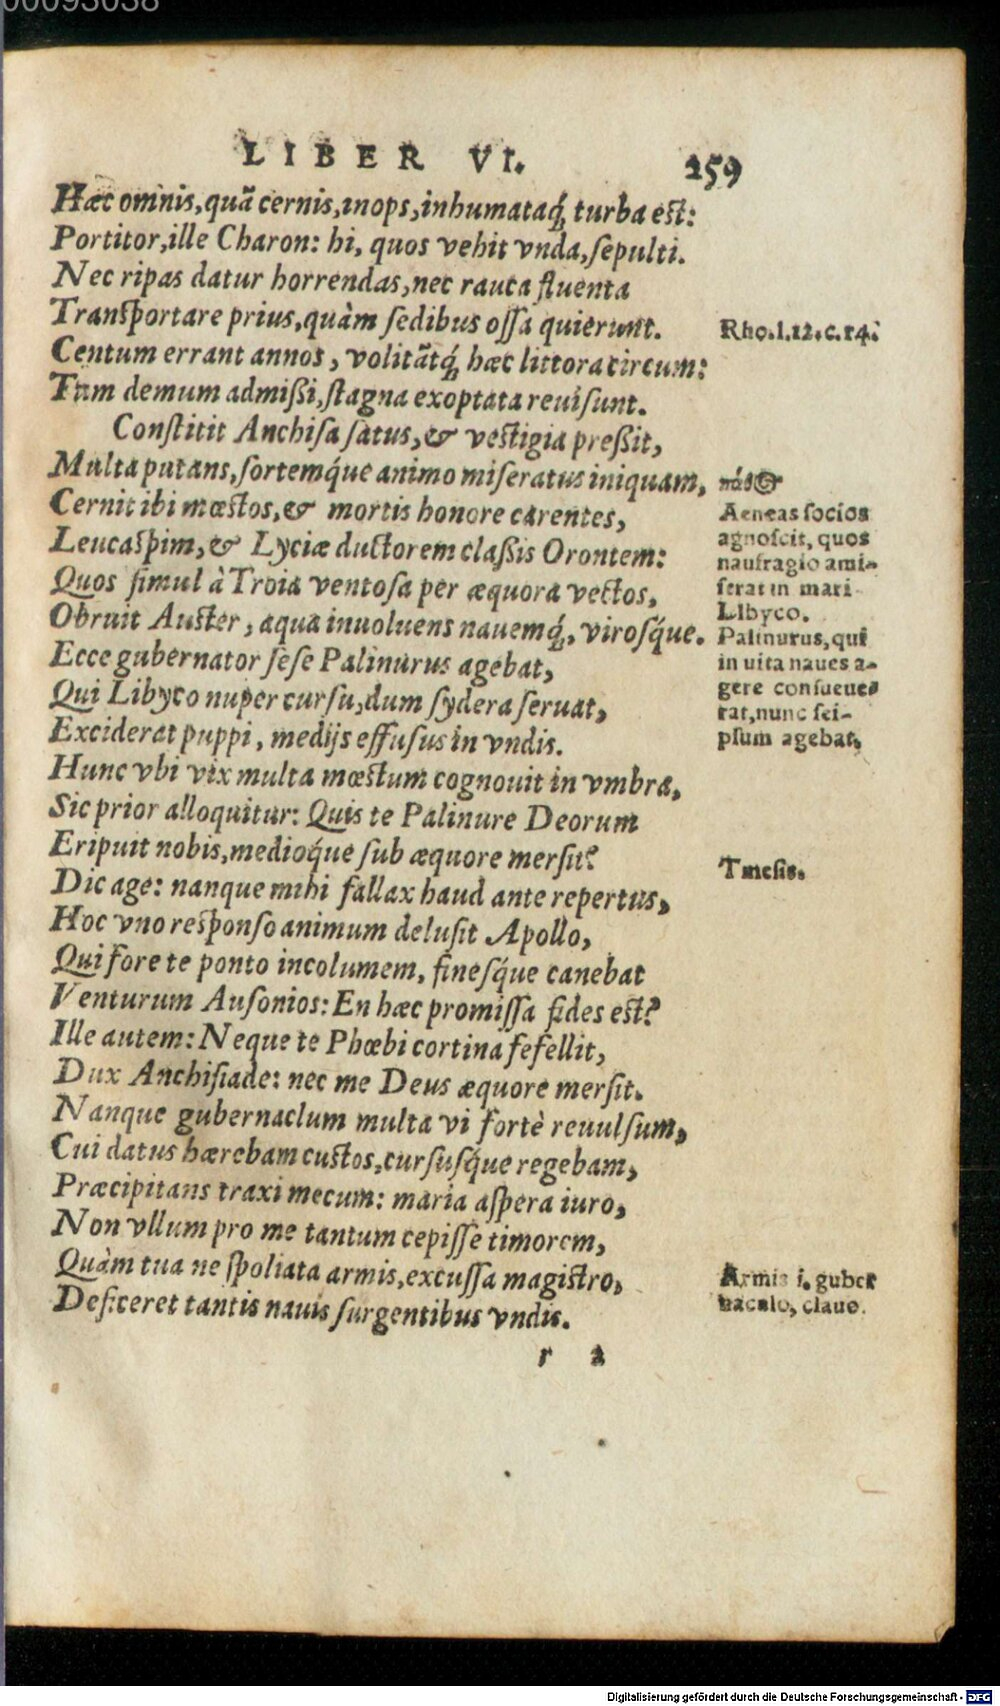 00093038
LIBER VI. 259
Hæc omnis, quã cernis, inops, inhumataq́; turba est:
Portitor, ille Charon: hi, quos vehit vnda, sepulti.
Nec ripas datur horrendas, nec rauca fluenta
Transportare prius, quàm sedibus ossa quierunt.
Rho. l. 12. c. 14.
Centum errant annos, volitãtq́; hæc littora circum:
Tum demum admißi, stagna exoptata reuisunt.
Constitit Anchisa satus, & vestigia preßit,
Multa putans, sortemq́ue animo miseratus iniquam,
πάθ
Cernit ibi mœstos, & mortis honore carentes,
Leucaspim, & Lyciæ ductorem claßis Orontem:
Quos simul à Troia ventosa per æquora vectos,
Obruit Auster, aqua inuoluens nauemq́;, virosq́ue.
Ecce gubernator sese Palinurus agebat,
Qui Libyco nuper cursu, dum sydera seruat,
Exciderat puppi, medijs effusus in vndis.
Aeneas socios
agnoscit, quos
naufragio ami-
serat in mari
Libyco.
Palinurus, qui
in uita naues a-
gere consueue-
rat, nunc sei-
psum agebat.
Hunc vbi vix multa mœstum cognouit in vmbra,
Sic prior alloquitur: Quis te Palinure Deorum
Eripuit nobis, medioq́ue sub æquore mersit?
Tmesis.
Dic age: nanque mihi fallax haud ante repertus,
Hoc vno responso animum delusit Apollo,
Qui fore te ponto incolumem, finesq́ue canebat
Venturum Ausonios: En hæc promissa fides est?
Ille autem: Neque te Phœbi cortina fefellit,
Dux Anchisiade: nec me Deus æquore mersit.
Nanque gubernaclum multa vi fortè reuulsum,
Cui datus hærebam custos, cursusq́ue regebam,
Præcipitans traxi mecum: maria aspera iuro,
Non vllum pro me tantum cepisse timorem,
Quàm tua ne spoliata armis, excussa magistro,
Deficeret tantis nauis surgentibus vndis.
Armis i. guber
naculo, clauo.
r 2
Digitalisierung gefördert durch die Deutsche Forschungsgemeinschaft - DFG